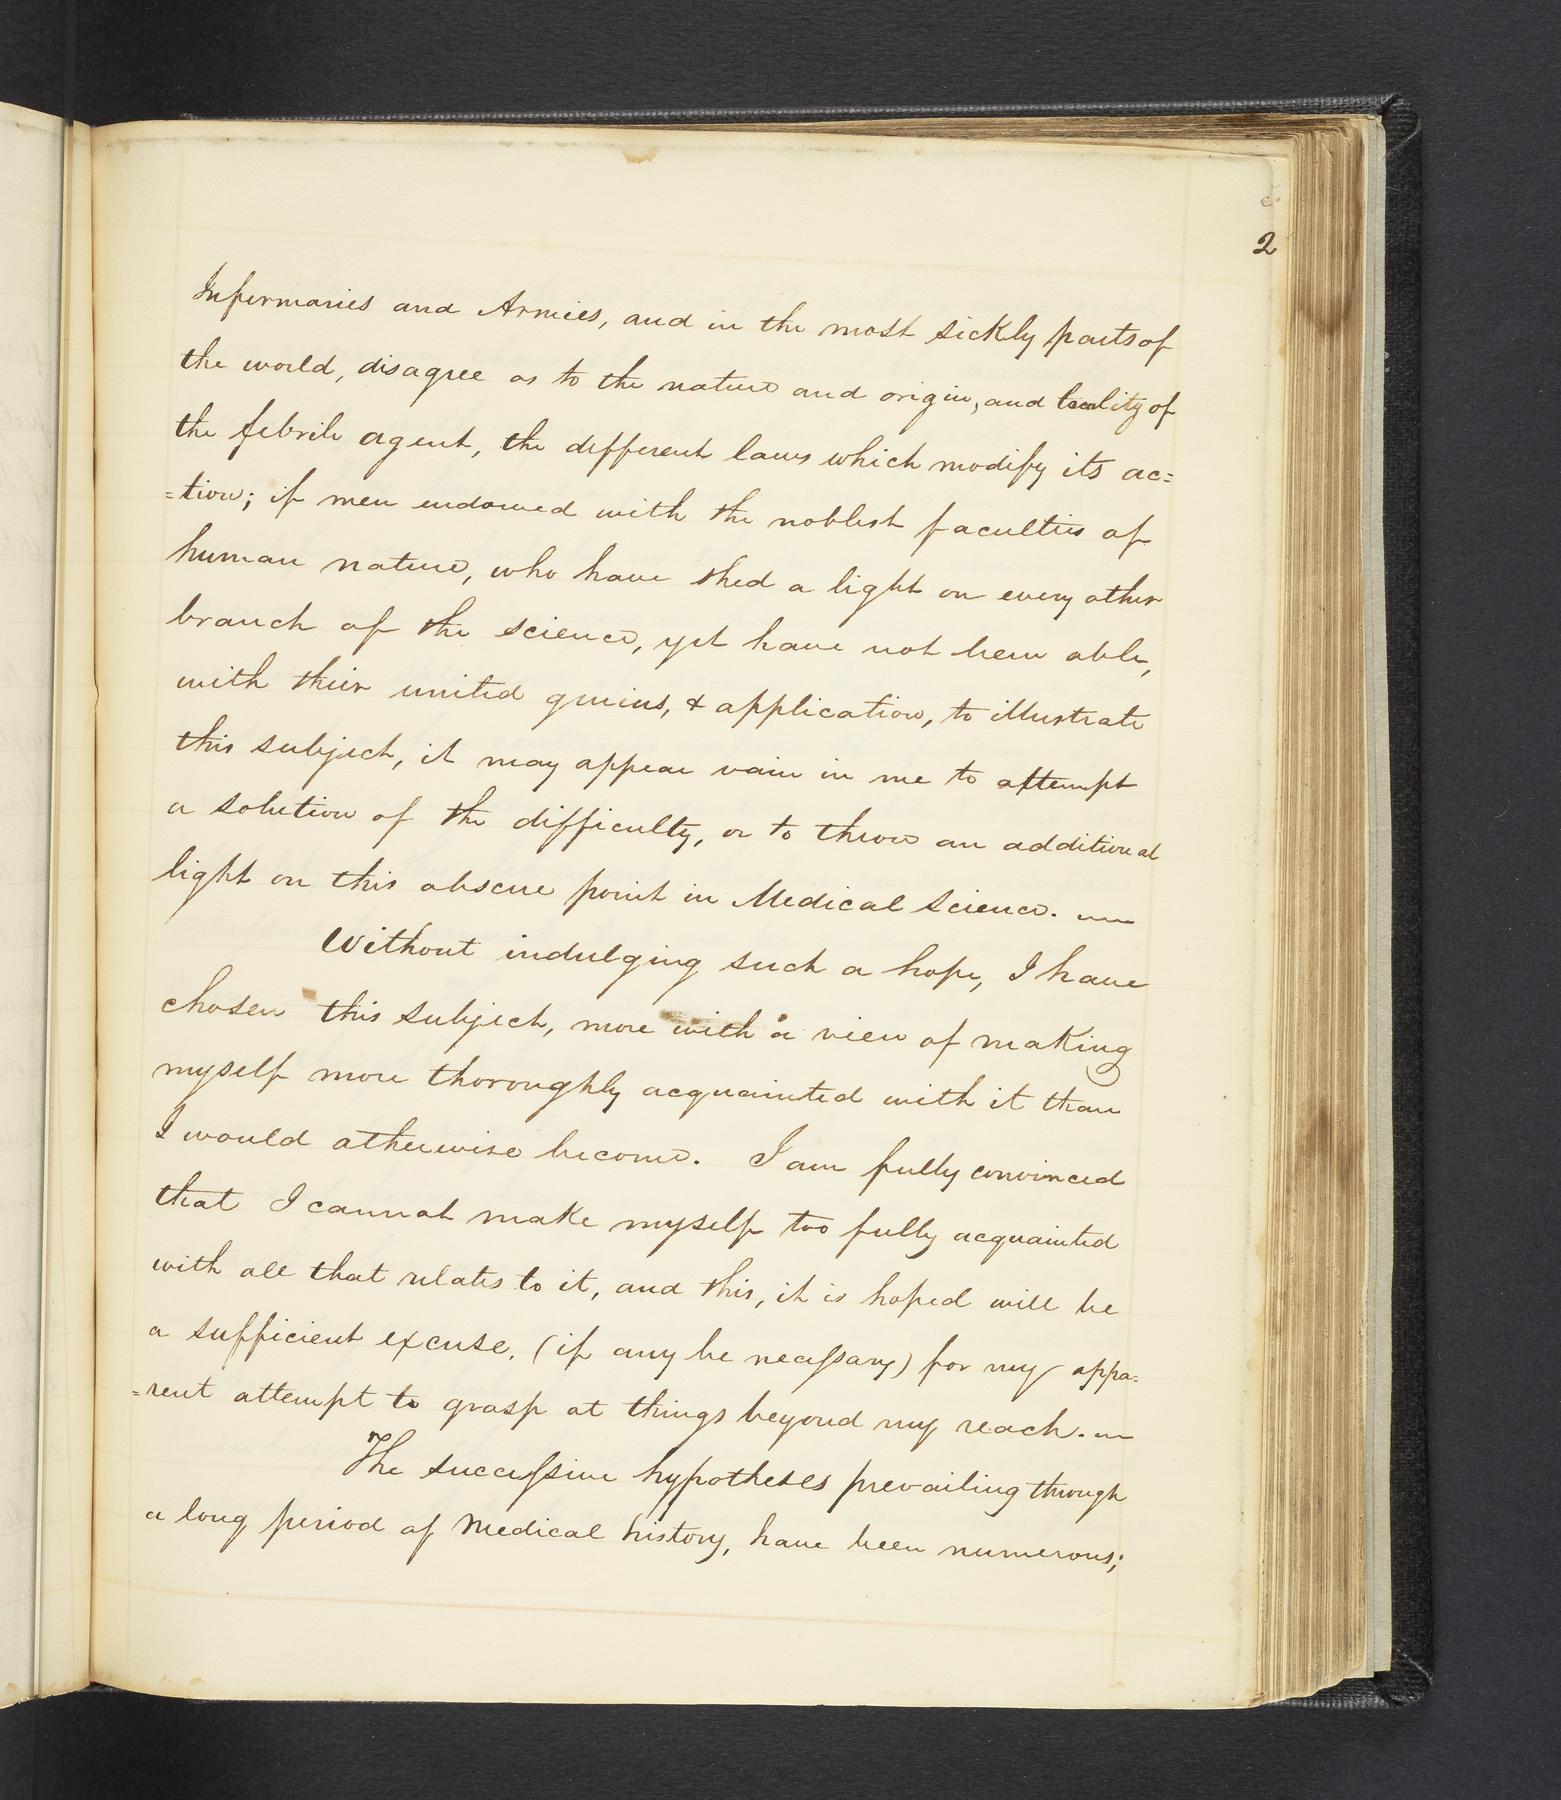 2
Infermaries and Armies, and in the most sickly parts of
the world, disagree as to the nature and origin, and locality of
the febrile agent, the different laws which modify its ac=
=tion; if men endowed with the noblest faculties of
human nature, who have shed a light on every other
branch of the science, yet have not been able,
with their united genius, & application, to illustrate
this subject, it may appear vain in me to attempt
a solution of the difficulty, or to throw an additional
light on this obscure point in Medical Science. —
Without indulging such a hope, I have
chosen this subject, more with a view of making
myself more thoroughly acquainted with it than
I would otherwise become. I am fully convinced
that I cannot make myself too fully acquainted
with all that relates to it, and this, it is hoped will be
a sufficient excuse, (if any be necessary) for my appa=
=rent attempt to grasp at things beyond my reach. —
The successive hypotheses prevailing through
a long period of Medical history, have been numerous;